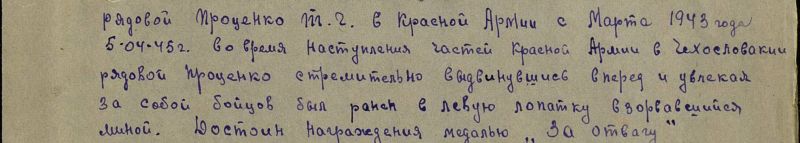 рядовой Проценко Т.Г. в Красной Армии с Марта 1943 года
5.04.45г. во время наступления частей Красной Армии в Чехословакии
рядовой Проценко стремительно выдвинувшись вперед и увлекая
за собой бойцов был ранен в левую лопатку взорвавшийся
миной. Достоин награждения медалью „За отвагу"